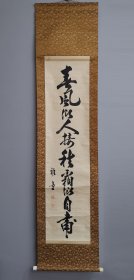 春風以人接秋霜以自粛